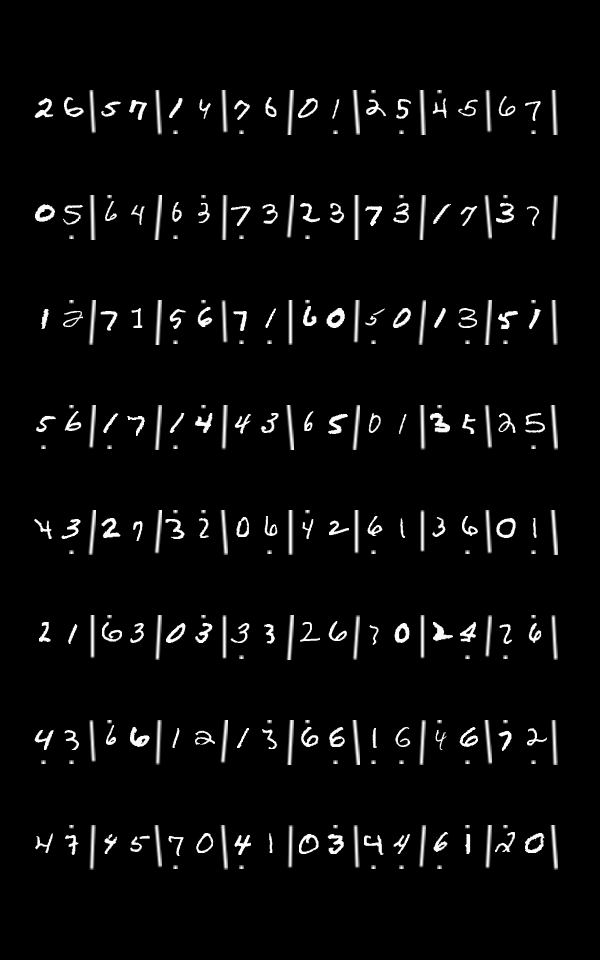 2 6 | 5 7 | 1 4 | 7 6 | 0 1 | 2 5 | 4 5 | 6 7 |
0 5 | 6 4 | 6 3 | 7 3 | 2 3 | 7 3 | 1 7 | 3 7 |
1 2 | 7 1 | 5 6 | 7 1 | 6 0 | 5 0 | 1 3 | 5 1 |
5 6 | 1 7 | 1 4 | 4 3 | 6 5 | 0 1 | 3 5 | 2 5 |
4 3 | 2 7 | 3 2 | 0 6 | 4 2 | 6 1 | 3 6 | 0 1 |
2 1 | 6 3 | 0 3 | 3 3 | 2 6 | 7 0 | 2 4 | 7 6 |
4 3 | 6 6 | 1 2 | 1 3 | 6 6 | 1 6 | 4 6 | 7 2 |
4 7 | 4 5 | 7 0 | 4 1 | 0 3 | 4 4 | 6 1 | 2 0 |